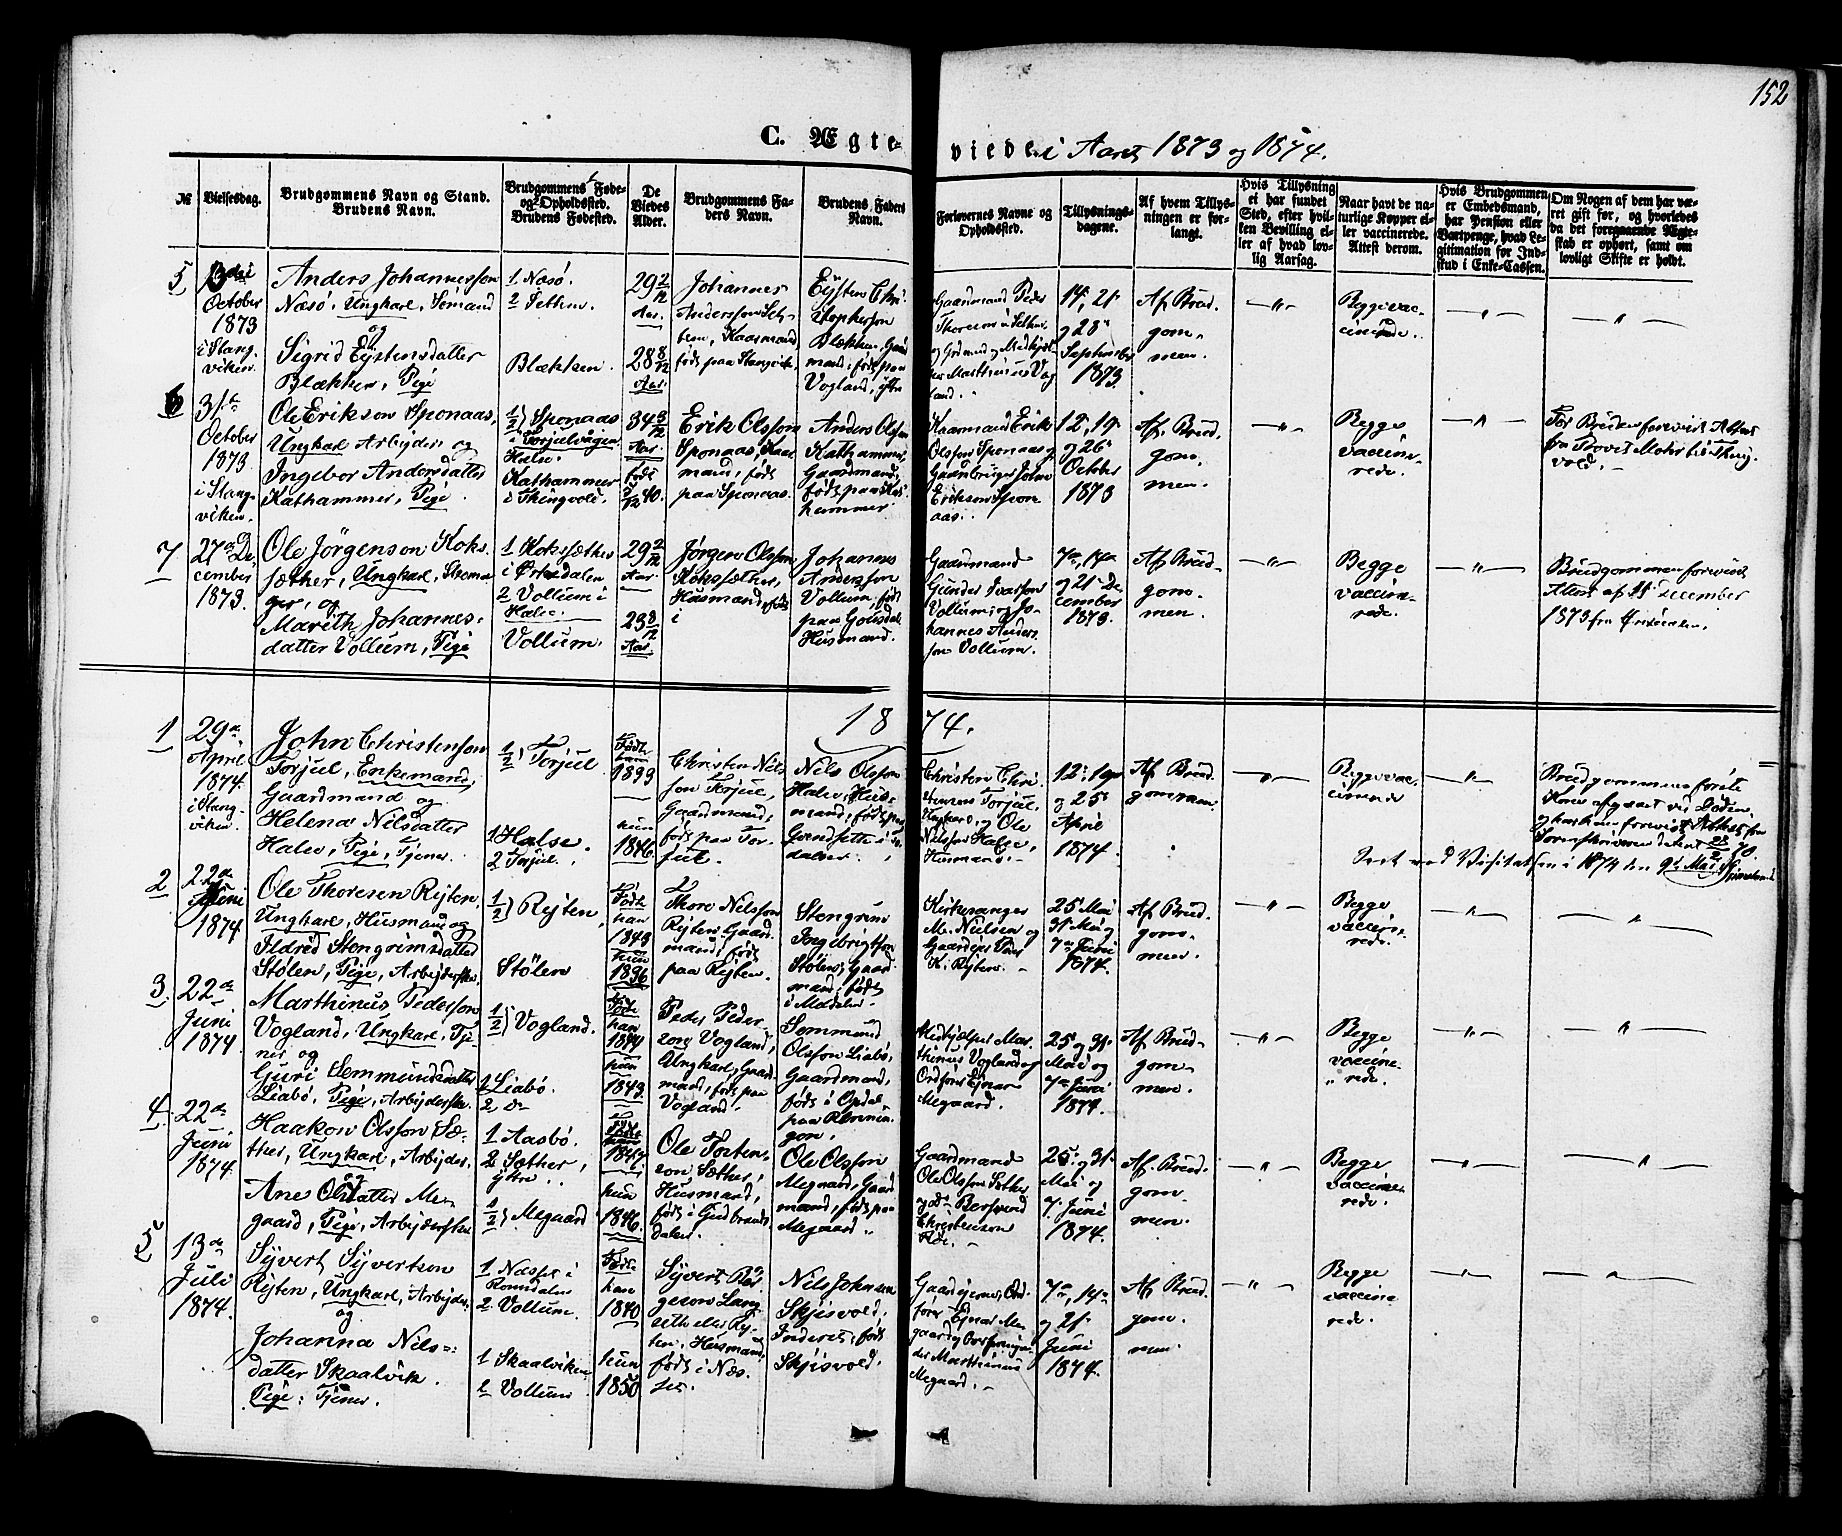 152
C. Ægte-viede i Aaret 1873 og 1874.
№
Vielsesdag.
Brudgommens Navn og Stand.
Brudens Navn.
Brudgommens Føde-
og Opholdssted.
Brudens Fødested.
De
Viedes
Alder.
Brudgommens Fa-
ders Navn.
Brudens Faders
Navn.
Forlovernes Navne og
Opholdssted.
Tillysnings-
dagene.
Af hvem Tillys-
ningen er for-
langt.
Hvis Tillysning
ei har fundet
Sted, efter hvil-
ken Bevilling el-
ler af hvad lov-
lig Aarsag.
Naar havt de na-
turlige Kopper el-
ler vaccinerede.
Attest derom.
Hvis Brudgommen
er Embedsmand,
har Pension eller
Vartpenge, hvad Le-
gitimation for Ind-
skud i Enke-Cassen.
Om Nogen af dem har væ-
ret gift før, og hvorledes
da det foregaaende Ægte-
skab er ophørt, samt om
lovligt Skifte er holdt.
5
October
1873
i Stang-
viken.
Anders Johannesson
Næsø, Ungkarl, Sømand
og
Sigrid Eystensdatter
Blækken, Pige
1 Næsø.
2 Sethen.
Blækken.
29 2/12
Aar.
28 8/12
Aar.
Johannes
Andersson Set-
hen, Kaarmand
født paa Stangvik
Eysten Chri-
stophersen
Blækken, Gaard-
mand, født paa
Vogland, ytre
Gaardmand Peder
Thoreson i Sethen
og Medhjæl-
per Marthinus Vog-
land.
14, 21
og 28
September
1873.
Af Brud-
gom-
men.
— " —
Begge vac-
cinerede.
— " —
— " —
6
31te
October
1873.
i Stang-
viken.
Ole Erikson Sponaas,
Ungkarl Arbejder og
Ingebor Andersdatter
Kathammer, Pige.
1/2 } Sponaas
i Torjulvaagen
Halse.
Kathammer
i Thingvold.
34 3/12
Aar.
født
40.
Erik Olsson
Sponaas, Kaar-
mand, født
paa Sponaas.
Anders Olsson
Kathammer,
Gaardmand,
født paa Kat-
hammer
Kaarmand Erik
Olsson Sponaas og
Gaardbruger John
Erikson Spon-
aas.
12, 19
og 26
October
1873
Af Brud-
gom-
men.
— " —
Begge
vaccine-
rede.
— " —
For Bruden forevist Attest
fra Provst Mohr til Thing-
vold. —
7
27de De-
cember
1873.
Ole Jörgenson Koks-
sæther, Ungkarl,
og
Marith Johannes-
datter Vollum, Pige
1 Koksæther
i Ørkedalen
2 Vollum i
Halse.
Vollum.
29 2/12
Aar.
23 8/12
Aar.
Jørgen Olsson
Koksæther,
Husmand, født
i
Johannes
Andersson
Vollum, født
paa
Husmand.
Gaardmand
Gunder Ivarson
Vollum, og Jo-
hannes Anders-
son Vollum.
7de, 14de
og 21 De-
cember
1873.
Af Brud-
gom-
men.
— " —
Begge
vaccine-
rede.
— " —
Brudgommen forevist
Attest af December
1873 fra Ørkedalen.
1874.
1
29de
April
1874.
i Stang-
viken.
John Christenson
Torjul, Enkemand,
Gaardmand og
Helena Nilsdatter
Halse, Pige, Tjener.
1/2 } Torjul
1 Halse.
2 Torjul.
Født
han
1833
hun
1846.
Christen Nils-
son Torjul,
Gaardmand,
født paa Tor-
jul.
Nils Olsson
Halse, Hus-
mand, født paa
Christen Chri-
stensen Torjul,
og Ole
Nilsson Halse,
Husmand.
12, 19de
og 25
April
1874.
Af Brud-
gommen.
— " —
Begge vac-
cinerede
— " —
Brudgommens første
Kone afgaaet ved Døden
og har han forevist Attest fra
Sorenskriveren datert
Seet ved Visitatsen i 1874 den 9de Mai
2
22de
Juni
1874
Ole Thoresen Rejten,
Ungkarl, Husmand og
Ildrid Stengrimsdatter
Stølen, Pige, Arbejderske,
1/2 } Rejten,
Stølen
Født
han
1843
hun
1836
Thore Nilsson
Rejten, Gaard-
mand, født
paa Rejten.
Stengrim
Ingebrigtson
Stølen, Gaard-
mand, født
i
Kirkesanger
M. Nielsen og
Gaardejer
K. Rejten. —
25 Mai
31 Mai og
7de Juni
1874.
Af Brud-
gom-
men.
— " —
Begge
vaccine-
rede.
— " —
— " —
3.
22de
Juni
1874.
Marthinus Pederson
Vogland, Ungkarl, Tje-
ner og
Guri Semmundsdatter
Liabø, Pige, Arbejderske.
1/2 } Vogland.
1 Liabø.
2 do
Født
han
1844
hun
1843.
Peder Peder-
son Vogland,
Ungkarl, Gaard-
mand, født paa
Vogland.
Semmund
Olsson Liabø,
Gaardmand,
født i Opdal
paa
Medhjælper Mar-
thinus Vogland og
Ordfører Ejnar
Megaard.
25 og 31
Mai og
7de Juni
1874.
Af Brud-
gom-
men.
— " —
Begge
vaccine-
rede.
— " —
— " —
4.
22de
Juni
1874.
Haakon Olsson Sæ-
ther, Ungkarl, Arbejder,
og
Anes Olsdatter Me-
gaard, Pige, Arbejderske
1 Aasbø.
2 Sæther,
ytre.
1/2 } Megaard
Født
han
hun
1846.
Ole Tosten-
son Sæther,
Husmand,
født i Gudbrands-
dalen.
Ole Olsson
Megaard, Gaard-
mand, født paa
Megaard.
Gaardmand
Ole Olsson Sæther
og do Bersvend
Christenson
25 og 31
Mai og
7 Juni
1874.
Af Brud-
gom-
men.
— " —
Begge
vaccine-
rede.
— " —
— " —
5
13de
Juli
1874.
Syvert Syvertson
Rejten, Ungkarl, Arbejder,
og
Johanna Nils-
datter Skaalvik.
Pige: Tjener.
1 Næsset i
Romsdalen
2. Vollum.
1 Skaalviken
2 Vollum
Født
han
1840
hun
1850
Syvert Bør-
geson Lang-
seth eller Rej-
ten, Husmand,
født i Næs-
set.
Nils Johansen
Skjisvold,
Inderet, født
Skjisvold.
Gaardejerne, Ord-
fører Ejnar Me-
gaard og
Marthinus
Megaard. —
7de, 14de
og 21
Juni
1874.
Af Brud-
gom-
men.
— " —
Begge
vaccine-
rede.
— " —
— " —